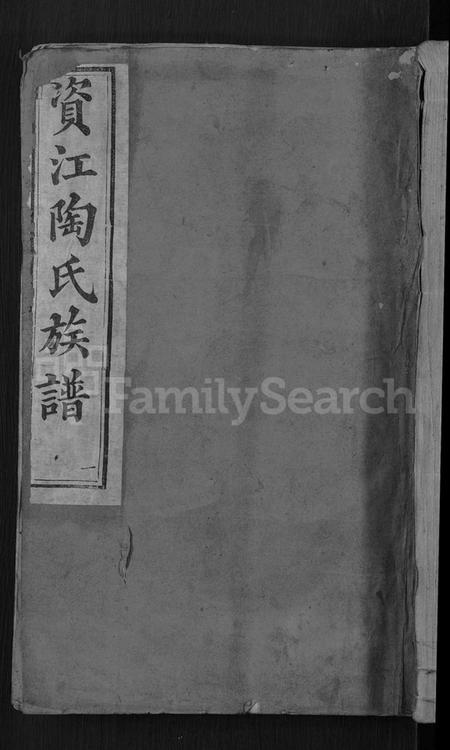 資江陶氏族譜
一
FamilySearch